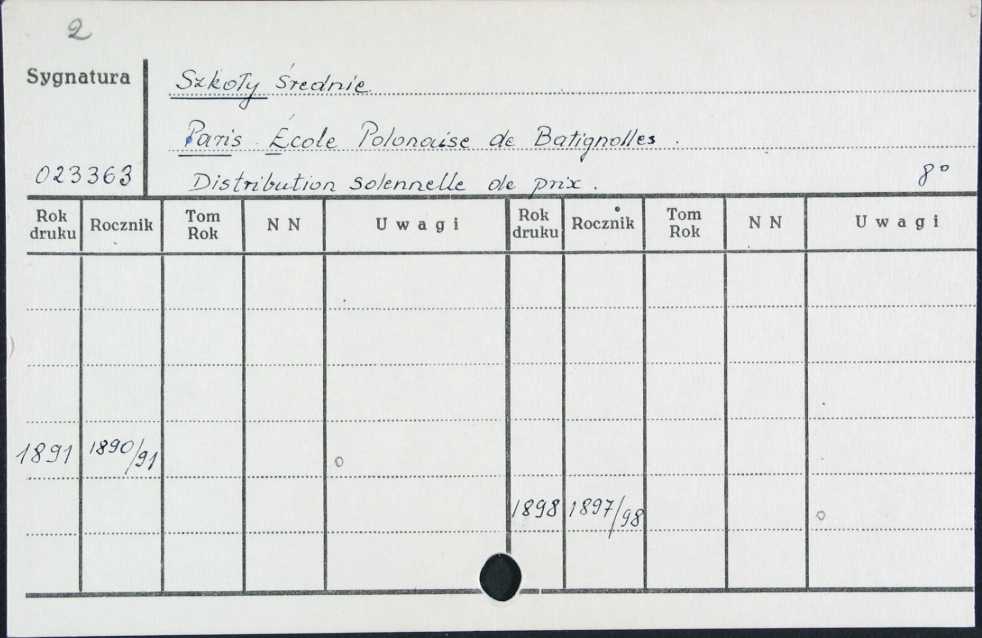 2
Sygnatura
Szkoły średnie
Paris. École Polonaise de Batignolles.
023363
Distribution solennelle de prix. 8°
Rok druku Rocznik Tom Rok NN Uwagi Rok druku Rocznik Tom Rok NN Uwagi
1891 1890/91 o
1898 1897/98 o